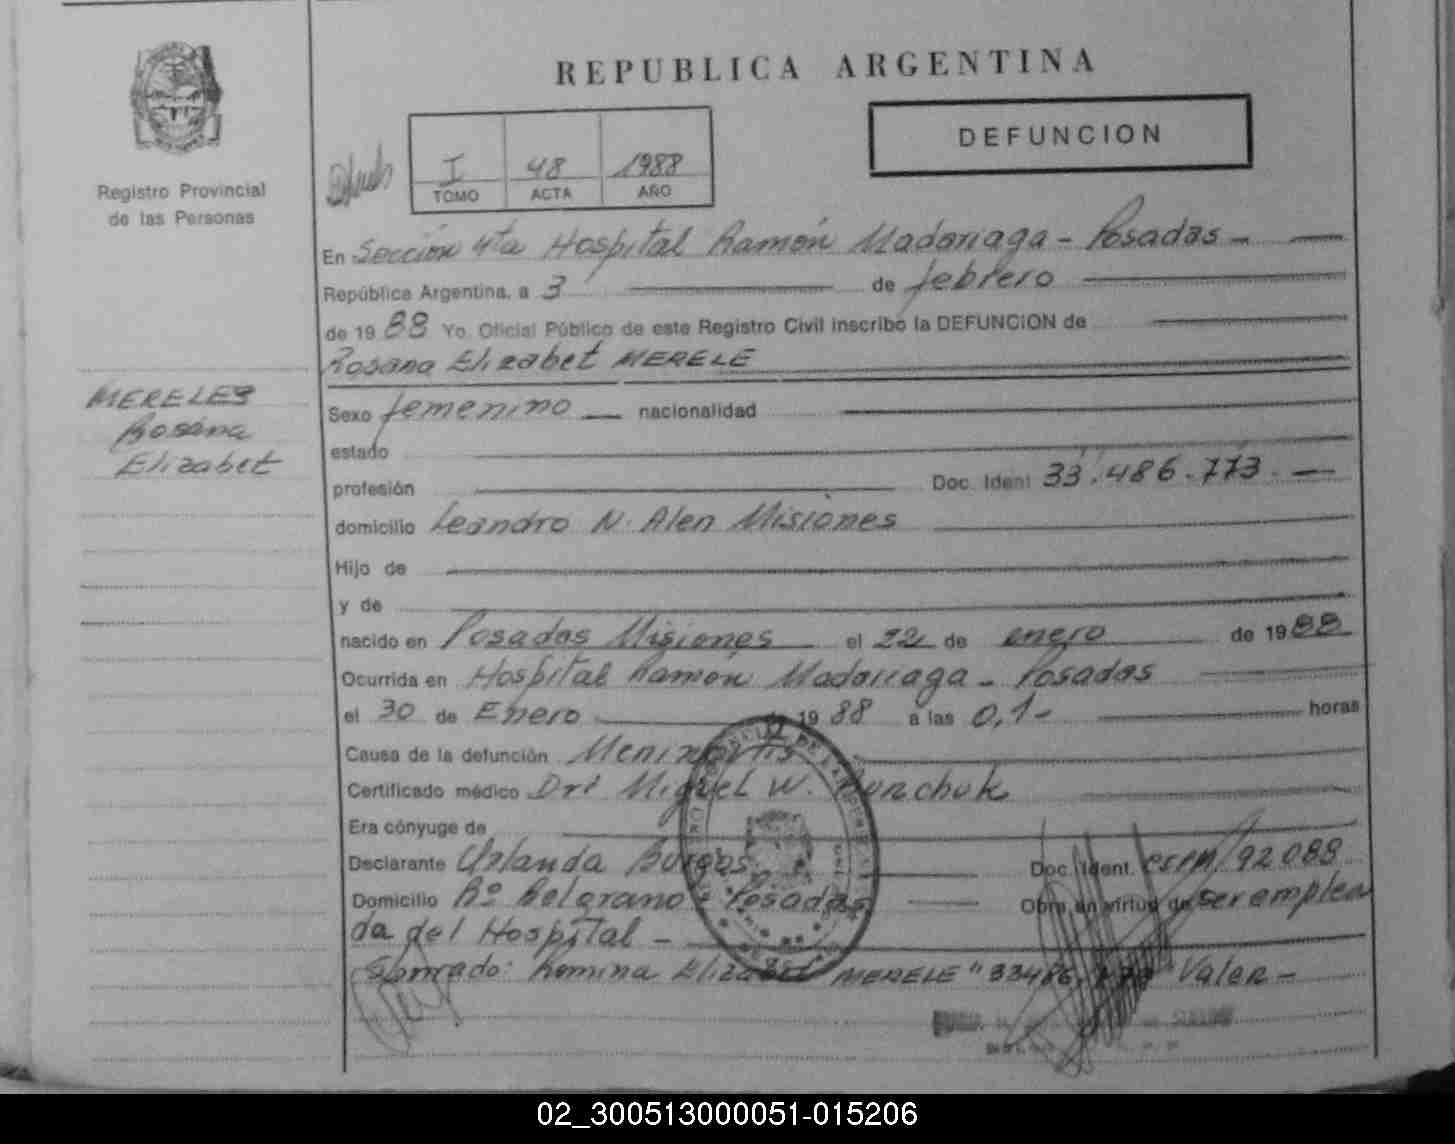 REPUBLICA ARGENTINA
DEFUNCION
Registro Provincial
de las Personas
I 48 1988
TOMO ACTA AÑO
En Sección 4ta Hospital Ramón Madariaga - Posadas -
República Argentina, a 3 de febrero
de 19 88 Yo, Oficial Público de este Registro Civil inscribo la DEFUNCION de
Rosana Elizabet MERELE
MERELES
Rosana
Elizabet
Sexo femenino nacionalidad
estado
profesión Doc. Ident 33.486.773.
domicilio Leandro N. Alen Misiones
Hijo de
y de
nacido en Posadas Misiones el 22 de enero de 19 88
Ocurrida en Hospital Ramón Madariaga - Posadas
el 30 de Enero de 19 88 a las 0,1- horas
Causa de la defunción
Certificado médico Drt Miguel W.
Era cónyuge de
Declarante Burgos Doc. Ident. 92.088
Domicilio Bº Belgrano - Posadas Obra en virtud de ser emplea
da del Hospital -
Elizabet MERELE " Valen -
02_300513000051-015206